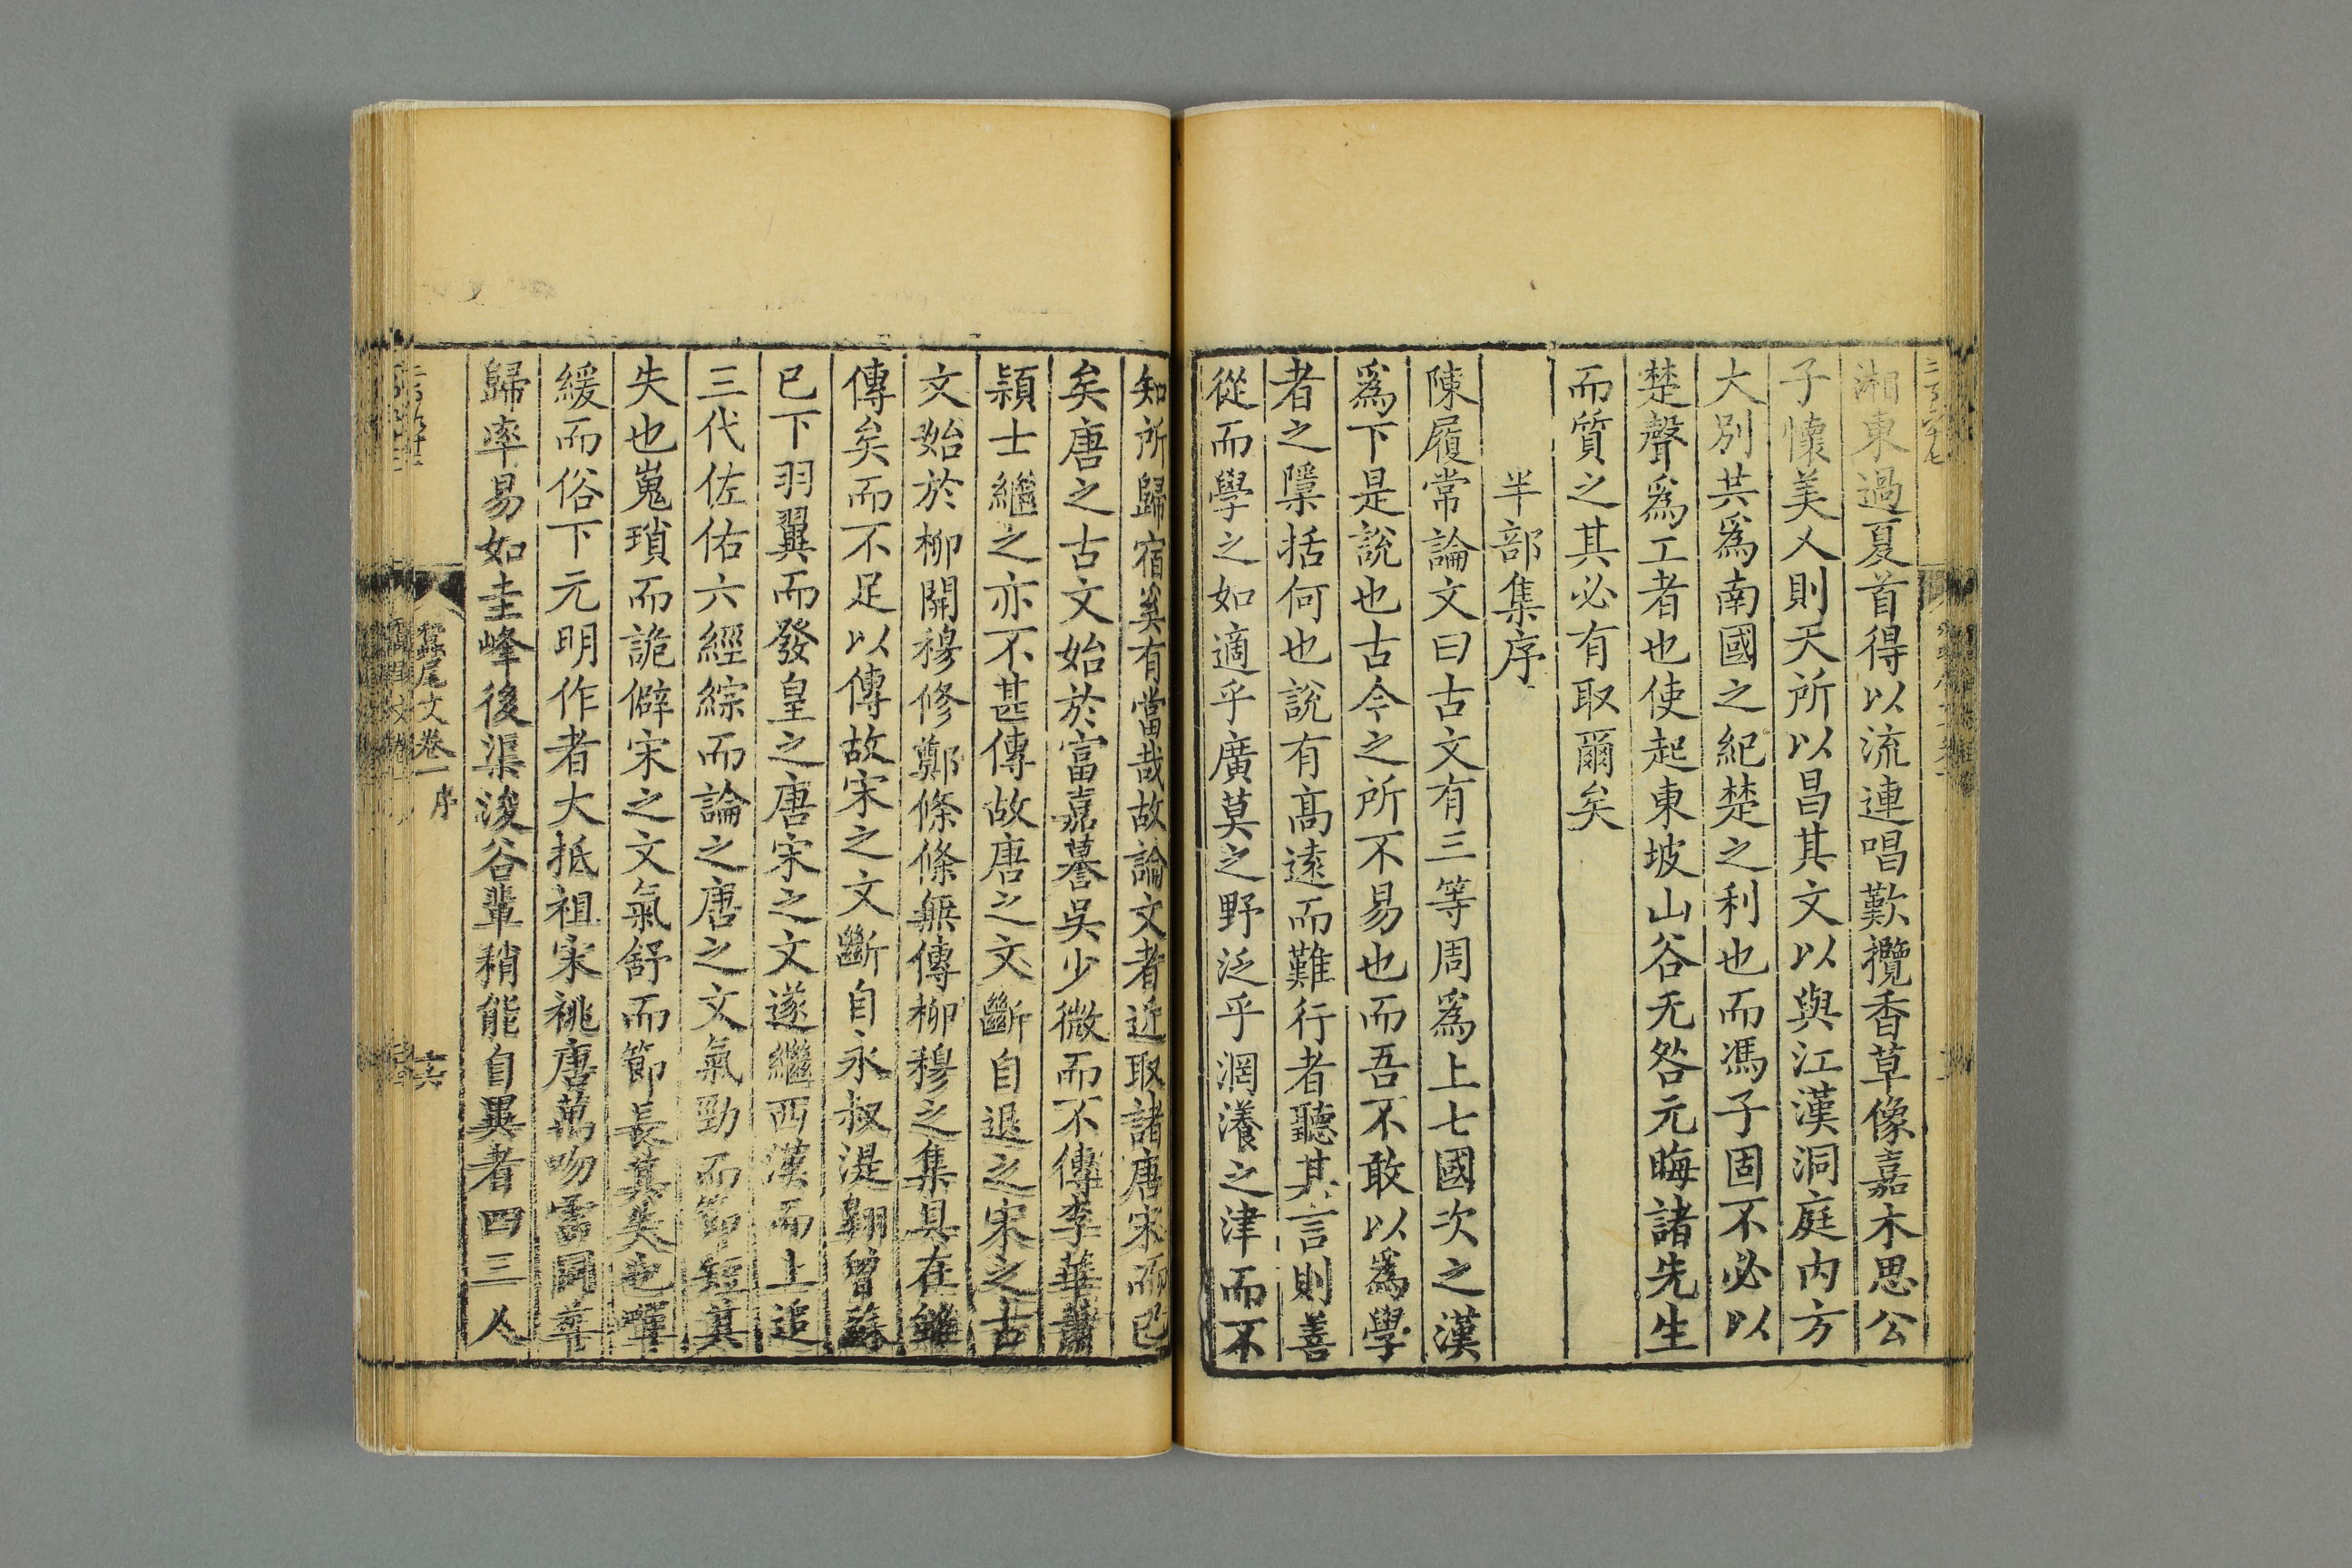 湘東過夏首得以流連唱歎攬香草像嘉木思公
子懷美人則天所以昌其文以與江漢洞庭内方
大别共爲南國之紀楚之利也而馮子固不必以
楚聲爲工者也使起東坡山谷无咎元晦諸先生
而質之其必有取爾矣
半部集序
陳履常論文曰古文有三等周爲上七國次之漢
爲下是説也古今之所不易也而吾不敢以爲學
者之檃括何也説有高遠而難行者聽其言則善
從而學之如適乎廣莫之野泛乎㴏瀁之津而不
知所歸宿奚有當哉故論文者近取諸唐宋而已
矣唐之古文始於富嘉謩吳少微而不傳李華蕭
頴士繼之亦不甚傳故唐之文斷自退之宋之古
文始於柳開穆修鄭條條無傳柳穆之集具在雖
傳矣而不足以傳故宋之文斷自永叔湜翺曾蘇
已下羽翼而發皇之唐宋之文遂繼西漢而上追
三代佐佑六經綜而論之唐之文氣勁而節短其
失也嵬瑣而詭僻宋之文氣舒而節長其失也嘽
緩而俗下元明作者大抵祖宋祧唐萬吻雷同卒
歸率易如圭峰後渠浚谷輩稍能自異者四三人
蠶尾文卷一 序
十六